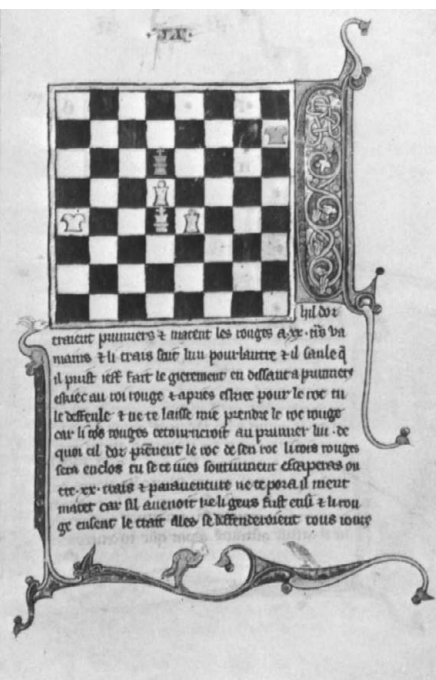 hil dor
traient primiers ⁊ matent les rouges a .xx.
mains ⁊ li trais sont lun pour lautre ⁊ il sanle q̄
il puist fait le gietement en dissant a primiers
eskiec au roi rouge ⁊ apries pour le roc tu
le deffende ⁊ ne te laisse mie prendre le roc rouge
car li rois rouges retourneroit au primier liu . de
quoi cil dor prēnent le roc de sen roc li rois rouges
sera enclos tu se te escaperas ou
tre .xx. trais ⁊ paraventure ne te pora il mient
mater car sil avenoit ke li gieus fust ensi ⁊ li rou
ge eusent le trait Ales se deffenderoient tous iours